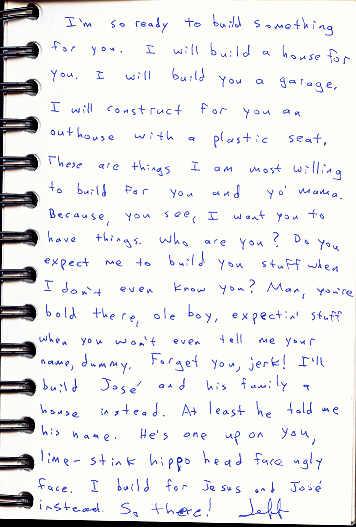 I'm so ready to build something
for you. I will build a house for
you. I will build you a garage.
I will construct for you an
outhouse with a plastic seat.
These are things I am most willing
to build for you and yo' mama.
Because, you see, I want you to
have things. Who are you? Do you
expect me to build you stuff when
I don't even know you? Man, you're
bold there, ole boy, expectin' stuff
when you won't even tell me your
name, dummy. Forget you, jerk! I'll
build José and his family a
house instead. At least he told me
his name. He's one up on you,
lime-stink hippo head face ugly
face. I build for Jesus and José
instead. So there! Jeff